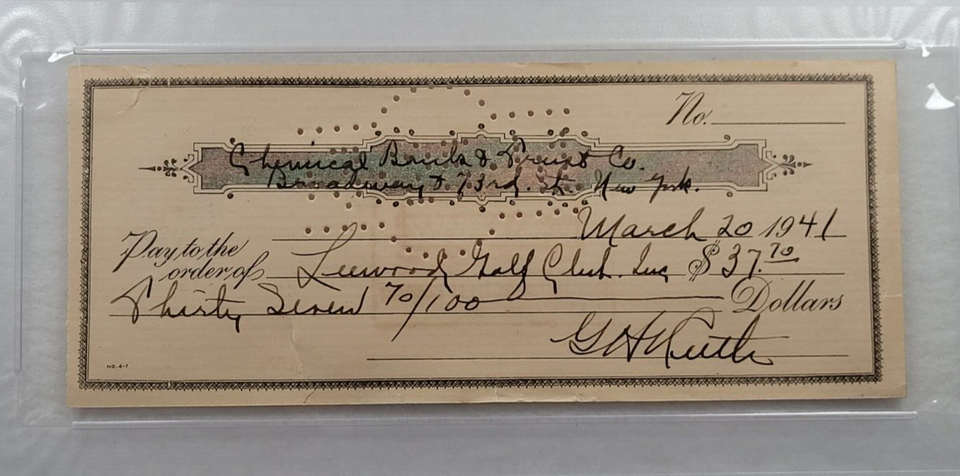 No.
Chemical Bank & Trust Co.
Broadway & 73rd. St. New York.
March 20 1941
Pay to the order of Leewood Golf Club. Inc $37.70
Thirty Seven 70/100 Dollars
G H Ruth
NO. 4-1